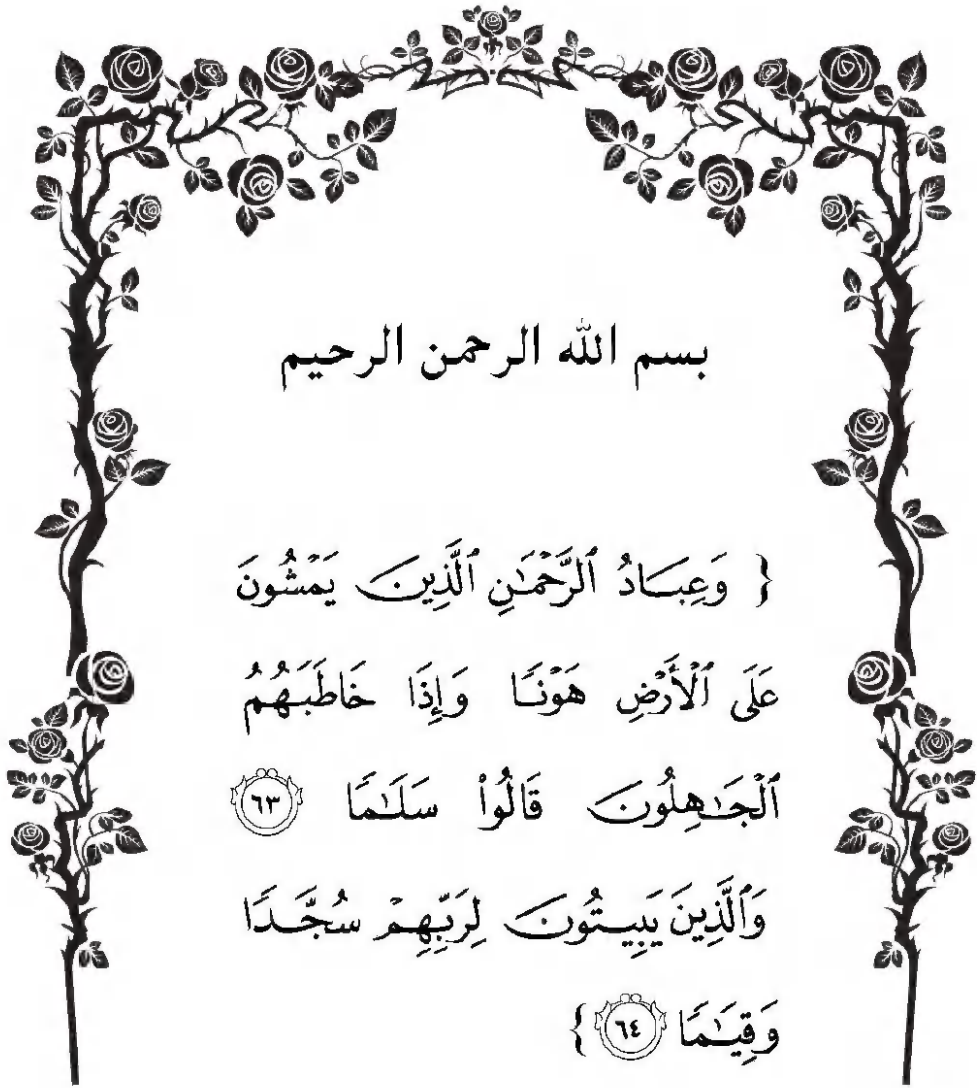 بسم الله الرحمن الرحيم
{ وَعِبَادُ ٱلرَّحْمَـٰنِ ٱلَّذِينَ يَمْشُونَ
عَلَى ٱلْأَرْضِ هَوْنًا وَإِذَا خَاطَبَهُمُ
ٱلْجَـٰهِلُونَ قَالُوا۟ سَلَـٰمًا ٦٣
وَٱلَّذِينَ يَبِيتُونَ لِرَبِّهِمْ سُجَّدًا
وَقِيَـٰمًا ٦٤ }